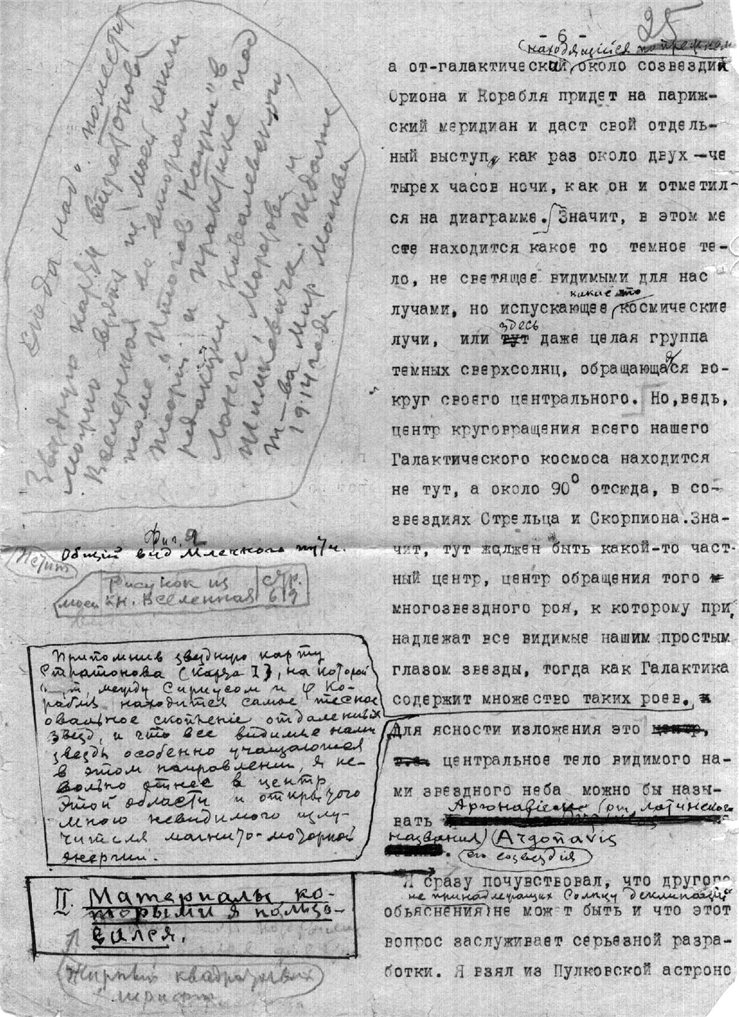 25
- 6 -
(находящийся
а от-галактический около созвездий
Ориона и Корабля придет на париж-
ский меридиан и даст свой отдель-
ный выступ, как раз около двух -че
тырех часов ночи, как он и отметил-
ся на диаграмме. Значит, в этом ме
сте находится какое то темное те-
ло, не светящее видимыми для нас
какие-то
лучами, но испускающее космические
здесь
лучи, или тут даже целая группа
темных сверхсолнц, обращающаяся во-
круг своего центрального. Но, ведь,
центр круговращения всего нашего
Галактического космоса находится
не тут, а около 90° отсюда, в со-
звездиях Стрельца и Скорпиона. Зна-
чит, тут должен быть какой-то част-
ный центр, центр обращения того
многозвездного роя, к которому при
надлежат все видимые нашим простым
глазом звезды, тогда как Галактика
содержит множество таких роев.
Для ясности изложения это центр,
центральное тело видимого на-
ми звездного неба можно бы назы-
вать (от латинского
названия Argonavis
его созвездия
Я сразу почувствовал, что другого
не принадлежащих Солнцу
объяснения не может быть и что этот
вопрос заслуживает серьезной разра-
ботки. Я взял из Пулковской астроно
Сюда надо поместить
Звездную карту Стратонова
можно взять из моей книги
Вселенная во втором
томе "Итогов Науки" в
теории и практике под
редакцией Ковалевского,
Ланге, Морозова и
Шимкевича. Издание
т-ва Мир. Москва
1914 года
Фиг. 2
Общий вид Млечного пути.
Петит
Рисунок из стр.
моей кн. Вселенная 69
Припомнив звездную карту
Стратонова (Карта I), на которой
между Сириусом и φ Ко-
рабля находится самое тесное
овальное скопление отдаленных
звезд, и что все видимые нами
звезды особенно учащаются
в этом направлении, я не-
вольно отнес в центр
этой области и открытого
мною невидимого излу-
чителя магнито-моторной
энергии.
II. Материалы, ко-
торыми я пользо-
вался.
Жирный
шрифт